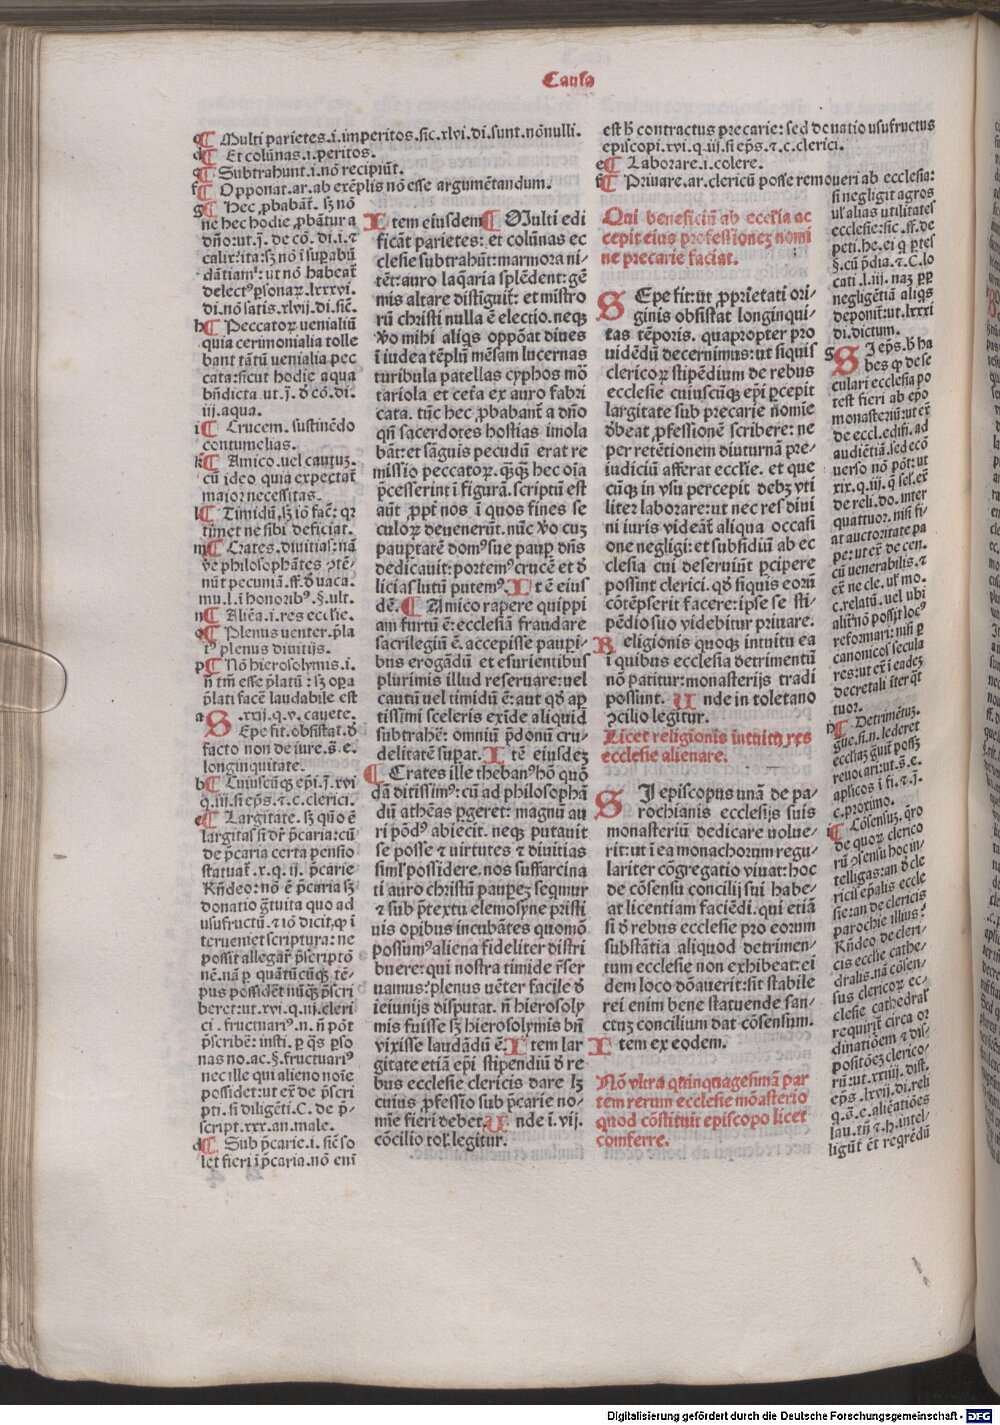 Causa
q ¶ Multi parietes.i.imperitos.sic.xlvi.di.sunt.nōnulli.
d ¶ Et colūnas.i.peritos.
e ¶ Subtrahunt.i.nō recipiūt.
f ¶ Opponat.ar.ab exēplis nō esse argumētandum.
g ¶ Hec ꝓbabāt̄. sꝫ nō
ne hec hodie ꝓbātur a
dño:ut.j. de cō. di.i.⁊
calix:ita:sꝫ nō ī suꝑabū
dātiam:ut nō habeāt
delectꝰ ꝑsonaꝝ.lxxxvi.
di.nō satis.xlvij.di.sic̄.
h ¶ Peccatoꝝ uenialiū
quia cerimonialia tolle
bant tātū uenialia pec
cata:sicut hodie aqua
bn̄dicta ut.j.d̄ cō.di.
iij.aqua.
i ¶ Crucem. sustinēdo
contumelias.
k ¶ Amico.uel cautuꝫ.
cū ideo quia expectat̄
maior necessitas.
l ¶ Timidū.sꝫ iō fac̄: qꝛ
tīmet ne sibi deficiat.
m ¶ Crates.diuitias:nā
ve philosophātes ꝯtē-
nūt pecuniā.ff.d̄ uaca.
mu.l.i honoribꝰ.§.ult.
n ¶ Aliēa.i.res eccl̄ie.
o ¶ Plenus uenter.p̄la
tꝰ plenus diuitijs.
p ¶ Nō hierosolymis.i.
n̄ tm̄ esse p̄latū:sꝫ oꝑa
p̄lati facē laudabile est
a .xxij.q.v.cauete.
SEpe fit.obsistat.d̄
facto non de iure.s̄.e.
longinquitate.
b ¶ Cuiuscūqꝫ ep̄i.J.xvi
q.iij.si ep̄s.⁊.c.clerici.
c ¶ Largitate.sꝫ qūo ē
largitas si dr̄ p̄caria:cū
de p̄caria certa pensio
statuat̄.x.q.ij. p̄carie
Rn̄deo:nō ē p̄caria sꝫ
donatio gr̄tuita quo ad
usufructū.⁊ iō dicit̄.ꝙ ī
terueniet scriptura:ne
possit allegar̄ p̄scriptō
nē.nā ꝑ quātūcūqꝫ tē-
pus possidēt nūqꝫ p̄scri
beret:ut.xvi.q.iij.cleri
ci.fructuariꝰ.n.n̄ pōt
p̄scribē:insti.ꝑ q̄s ꝑso
nas no.ac.§.fructuariꝰ
nec ille qui alieno noīe
possidet:ut ex̄ de p̄scri
pti.si diligēti.C.de p̄-
script.xxx.an.male.
d ¶ Sub p̄carie.i.sic̄ so
let fieri ī p̄caria.nō enī
Item eiusdem ¶ Multi edi
ficāt parietes: et colūnas ec
clesie subtrahūt:marmora ni-
tēt:auro laq̄aria splēdent:gē
mis altare distiguit̄: et mistro
rū christi nulla ē electio.neqꝫ
v̄o mihi aliqs oppōat diues
i iudea tēplū mēsam lucernas
turibula patellas cyphos mō
tariola et cet̄a ex auro fabri
cata. tūc hec ꝓbabant̄ a dño
qn̄ sacerdotes hostias imola
bāt:et sāguis pecudū erat re
missio peccatoꝝ.q̄qꝫ hec oīa
p̄cesserint ī figurā.scriptū est
aūt ꝓpt̄ nos ī quos fines se
culoꝝ deuenerūt.nūc v̄o cuꝫ
pauꝑtatē domꝰ sue pauꝑ dn̄s
dedicauit:portemꝰ crucē et d̄
licias lutū putemꝰ. Itē eius
dē. ¶ Amico rapere quippi
am furtū ē:ecclesiā fraudare
sacrilegiū ē.accepisse pauꝑi-
bus erogādū et esurientibus
plurimis illud reseruare:uel
cautū uel timidū ē:aut qd̄ aꝑ
tissimi sceleris exīde aliquid
subtrahē: omniū p̄donū cru-
delitatē suꝑat. Itē eiusdeꝫ
¶ Crates ille thebanꝰ hō quō
dā ditissimꝰ:cū ad philosophā
dū athēas ꝑgeret: magnū au
ri pōdꝰ abiecit.neqꝫ putauit
se posse ⁊ uirtutes ⁊ diuitias
siml̄ possidere.nos suffarcina
ti auro christū pauꝑeꝫ seqmur
⁊ sub p̄textu elemosyne pristi
nis opibus incubātes quomō
possumꝰ aliena fideliter distri
buere:qui nostra timide r̄ser
uamus:plenus uēter facile d̄
ieiunijs disputat. n̄ hierosoly
mis fuisse sꝫ hierosolymis bn̄
vixisse laudādū ē. Item lar
gitate etiā ep̄i stipendiū d̄ re
bus ecclesie clericis dare lꝫ
cuius ꝓfessio sub p̄carie no-
mīe fieri debet. Unde i.vij.
cōcilio tol.legitur.
est h̄ contractus precarie:sed donatio usufructus
episcopi.xvi.q.iij.si ep̄s.⁊.c.clerici.
e ¶ Laborare.i.colere.
f ¶ Priuare.ar.clericū posse remoueri ab ecclesia:
Qui beneficiū ab eccl̄ia ac
cepit eius professioneꝫ nomi
ne precarie faciat.
SEpe fit:ut ꝓprietati ori-
ginis obsistat longinqui-
tas tēporis. quapropter pro
uidēdū decernimus:ut siquis
clericoꝝ stipēdium de rebus
ecclesie cuiuscūqꝫ ep̄i ꝑcepit
largitate sub precarie nōmie
d̄beat ꝓfessionē scribere: ne
per retētionem diuturnā pre-
iudiciū afferat eccl̄ie. et que
cūqꝫ in vsu percepit debꝫ vti
liter laborare:ut nec res diui
ni iuris videāt̄ aliqua occasi
one negligi:et subsidiū ab ec
clesia cui deseruiūt ꝑcipere
possint clerici. qd̄ siquis eorū
cōtēpserit facere:ipse se sti-
pēdio suo videbitur priuare.
Religionis quoqꝫ intuitu ea
i quibus ecclesia detrimentū
nō patitur:monasterijs tradi
possunt. Unde in toletano
ꝯcilio legitur.
Licet religionis ītuitu res
ecclesie alienare.
SI episcopus unā de pa-
rochianis ecclesijs suis
monasteriū dedicare uolue-
rit:ut i ea monachorum regu-
lariter cōgregatio viuat:hoc
de cōsensu concilij sui habe-
at licentiam faciēdi.qui etiā
si d̄ rebus ecclesie pro eorum
substātia aliquod detrimen-
tum ecclesie non exhibeat:ei
dem loco dōauerit:sit stabile
rei enim bene statuende san-
ctuꝫ concilium dat cōsensum.
Item ex eodem.
Nō vltra quinquagesimā par
tem rerum ecclesie mōasterio
quod cōstituit episcopo licet
comferre.
si negligit agros
ul̄ alias utilitates
ecclesie:sic.ff.de
peti.he.ei q ꝑtes
§.cū p̄dia.⁊.C.lo
cati.l.iii.naꝫ ꝑꝑ
negligētiā aliqs
deponit̄:ut.lxxxi
di.dictum.
g SI ep̄s.h̄ ha
bes ꝙ de se
culari ecclesia po
test fieri ab ep̄o
monasteriū:ut ex̄
de eccl.edifi.ad
audiētiā.sed ecō
uerso nō pōt:ut
xix.q.iij.q̄ sel̄.ex̄
de reli.do.inter
quattuor.nisi fi-
at auctoritate pa
pe:ut ex̄ de cen.
cū venerabilis.⁊
ex̄ ne cle.ul̄ mo.
c.relatū.uel ubi
aliūn possit locꝰ
reformari:nisi ꝑ
canonicos secula
res:ut ex̄ i eadeꝫ
decretali iter qt̄
tuor.
h ¶ Detrimētuꝫ.
gue.si.n.lederet
ecclīaꝫ gr̄uit̄ possꝫ
reuocari:ut.s̄.e.
aplicos i fi.⁊.j.
c.proximo.
i ¶ Cōsensuꝫ.qro
de quoꝝ clerico
rū ꝯsensu hoc in-
telligas:an d̄ cle
ricis ep̄alis eccle
sie:an de clericis
parochie illius?
Rn̄deo de cleri-
cis eccl̄ie cathe-
dralis.nā cōsen-
sus clericoꝝ ec-
clesie cathedral̄
requirit̄ circa or
dinatiōem ⁊ dis-
positōeꝫ clerico-
rū:ut.xxiij.dist.
ep̄s.lxvij.di.reli
q.s̄.e.aliēatiōes
lau.tn̄ ⁊.h.intel-
ligūt ēt regrēdū
Digitalisierung gefördert durch die Deutsche Forschungsgemeinschaft - DFG